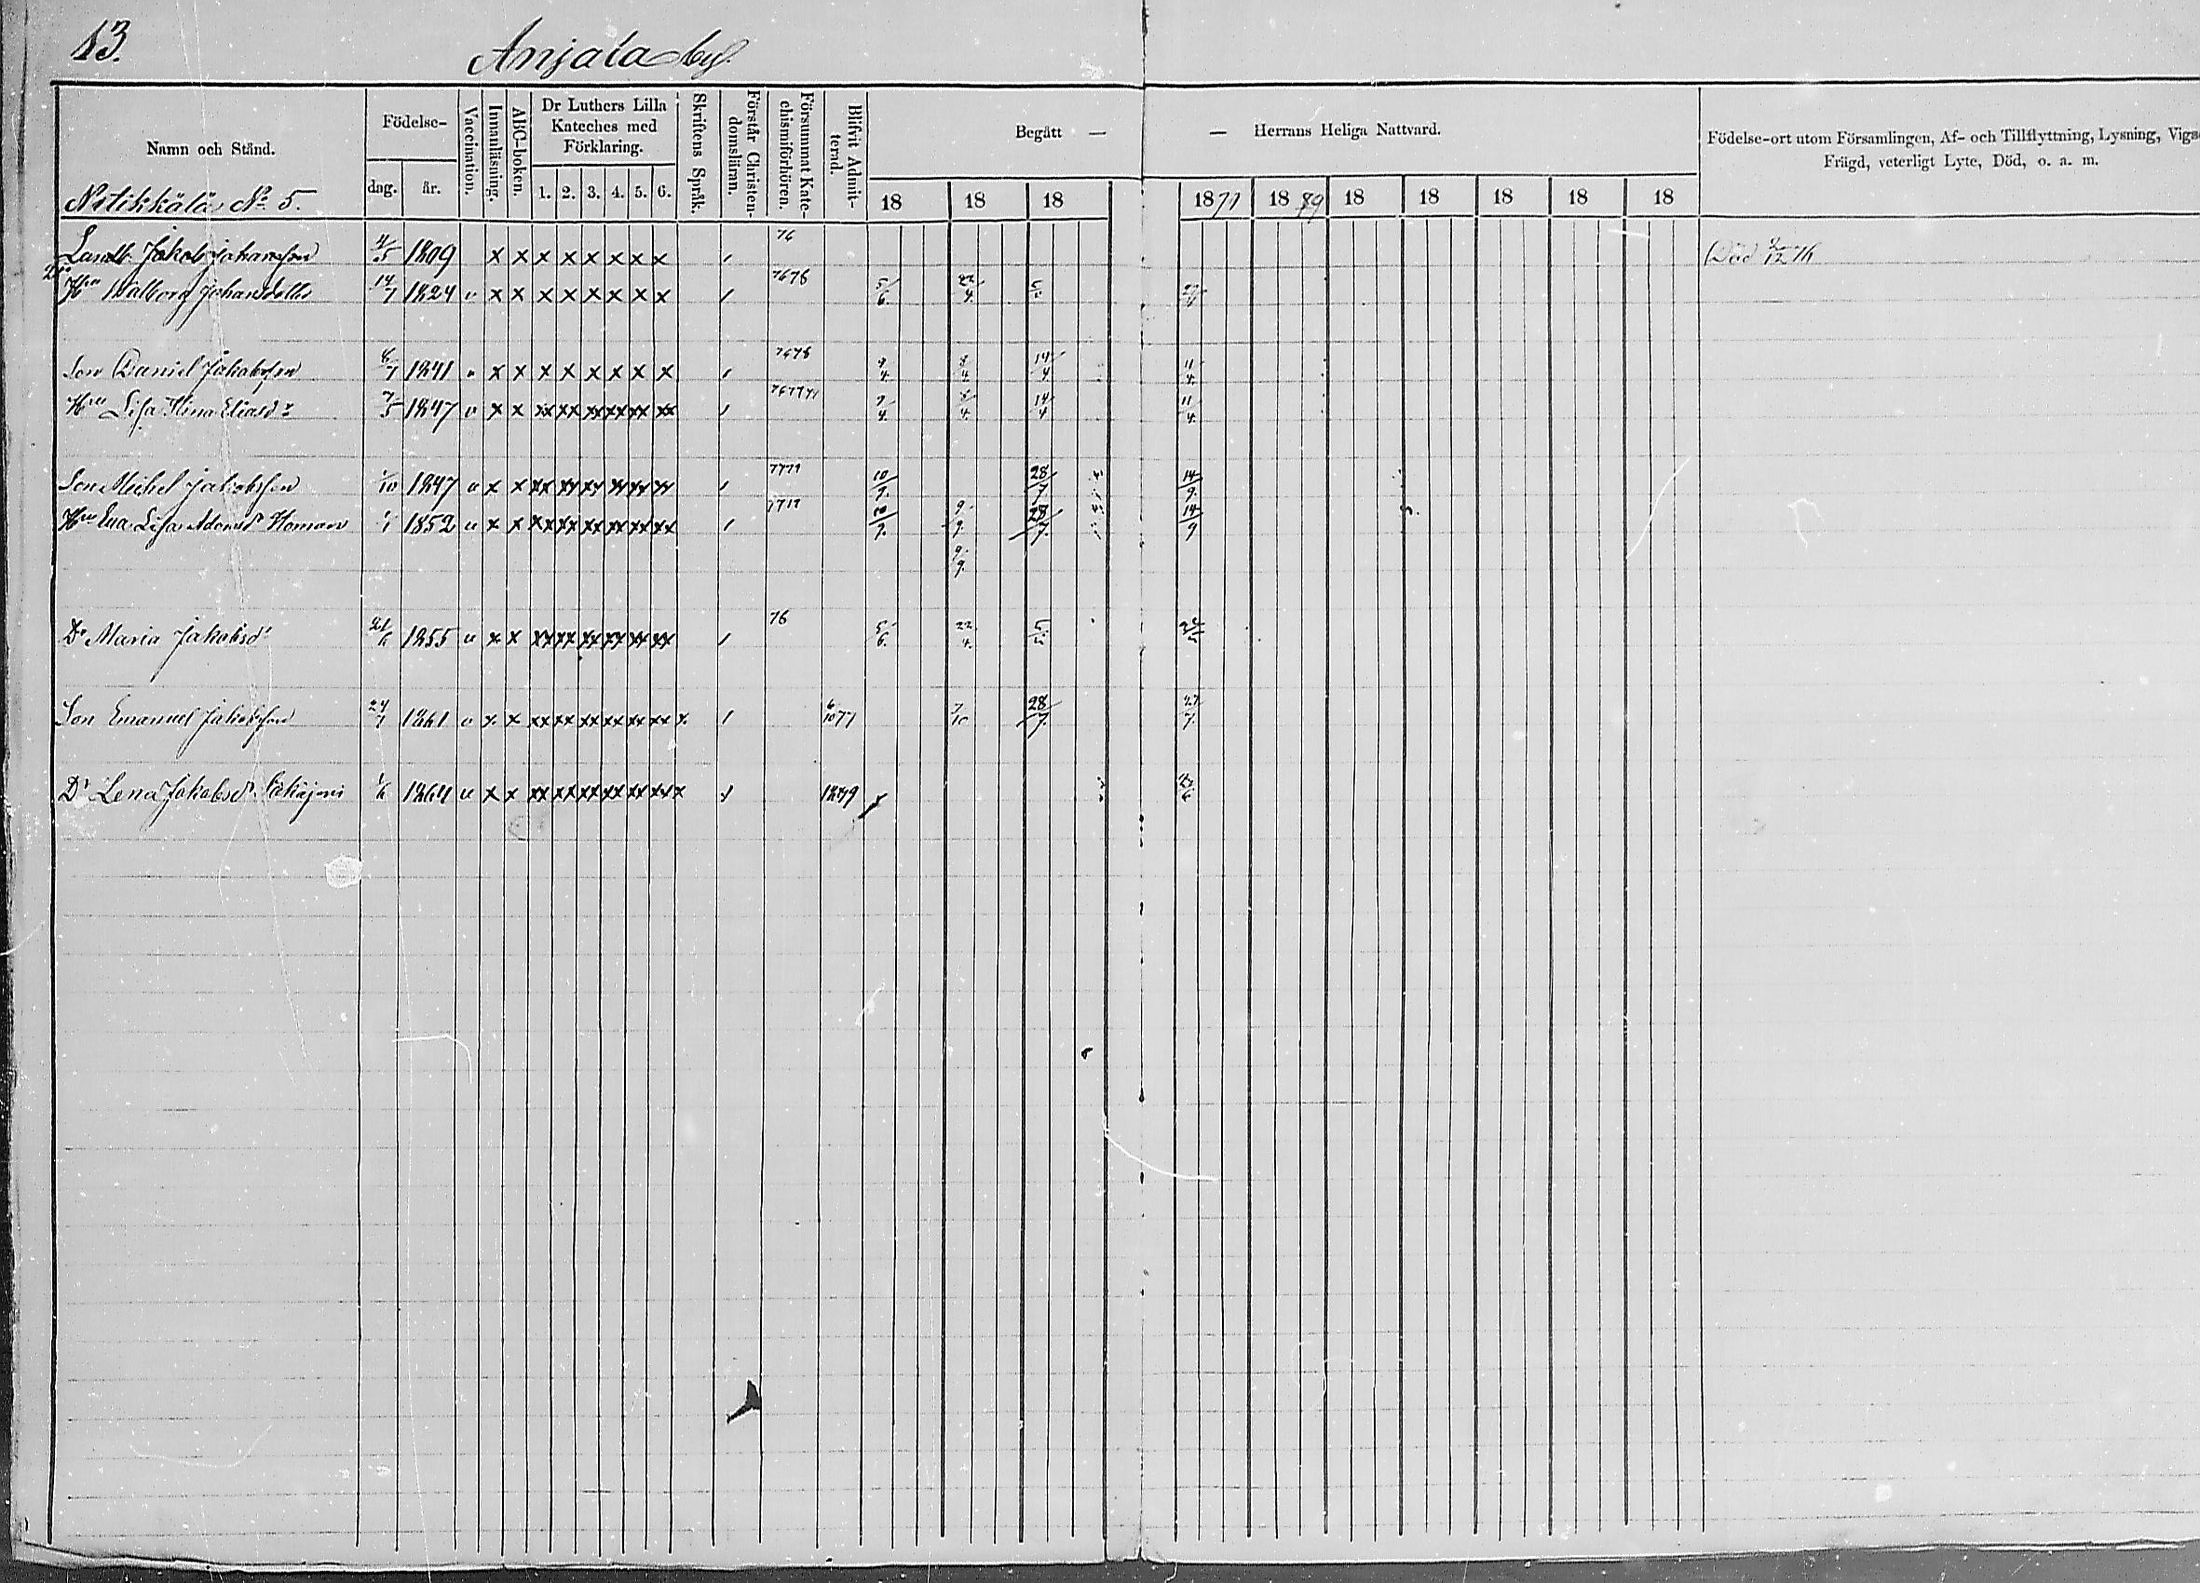 13.
Anjala by.
Namn och Stånd.
Födelse-
dag.
år.
Vaccination.
Innanläsning.
ABC-boken.
Dr Luthers Lilla
Kateches med
Förklaring.
1. 2. 3. 4. 5. 6.
Skriftens Språk.
Förstår Christen-
domsläran.
Försummat Kate-
chismiförhören.
Blifvit Admit-
terad.
Begått —
— Herrans Heliga Nattvard.
18 18 18 1871 1879 18 18 18 18 18
Födelse-ort utom Församlingen, Af- och Tillflyttning, Lysning, Vigs
Frägd, veterligt Lyte, Död, o. a. m.
No 5.
Jakob Johansson 4/5 1809 x x x x x x x x 76 Död 76
Hru Walborg Johansdotter 14/7 1824 v x x x x x x x x 7678 5/6 22/4
Son Daniel Jakobsson 6/7 1841 v x x x x x x x x 7678 9/4 8/4 14/4 11/4
Hru Lisa Stina Eliasdr 7/5 1847 v x x xx xx xx xx xx xx 7/4 14/4 11/4
Son Michel Jakobsson 1/10 1847 v x x xx xx xx xx xx xx 10/9 28/7 14/9
Hru Eva Lisa Adamsdr Homan 1/1 1852 v x x xx xx xx xx xx xx 10/9 9/9 28/7 14/9
9/9
Dr Maria Jakobsdr 21/6 1855 v x x xx xx xx xx xx xx 76 5/6 22/4
Son Emanuel Jakobsson 24/7 1861 v x x xx xx xx xx xx xx x 6/10 77 7/10 28/7 27/7
Dr Lena Jakobsdr 1/6 1864 v x x xx xx xx xx xx xx x 1879